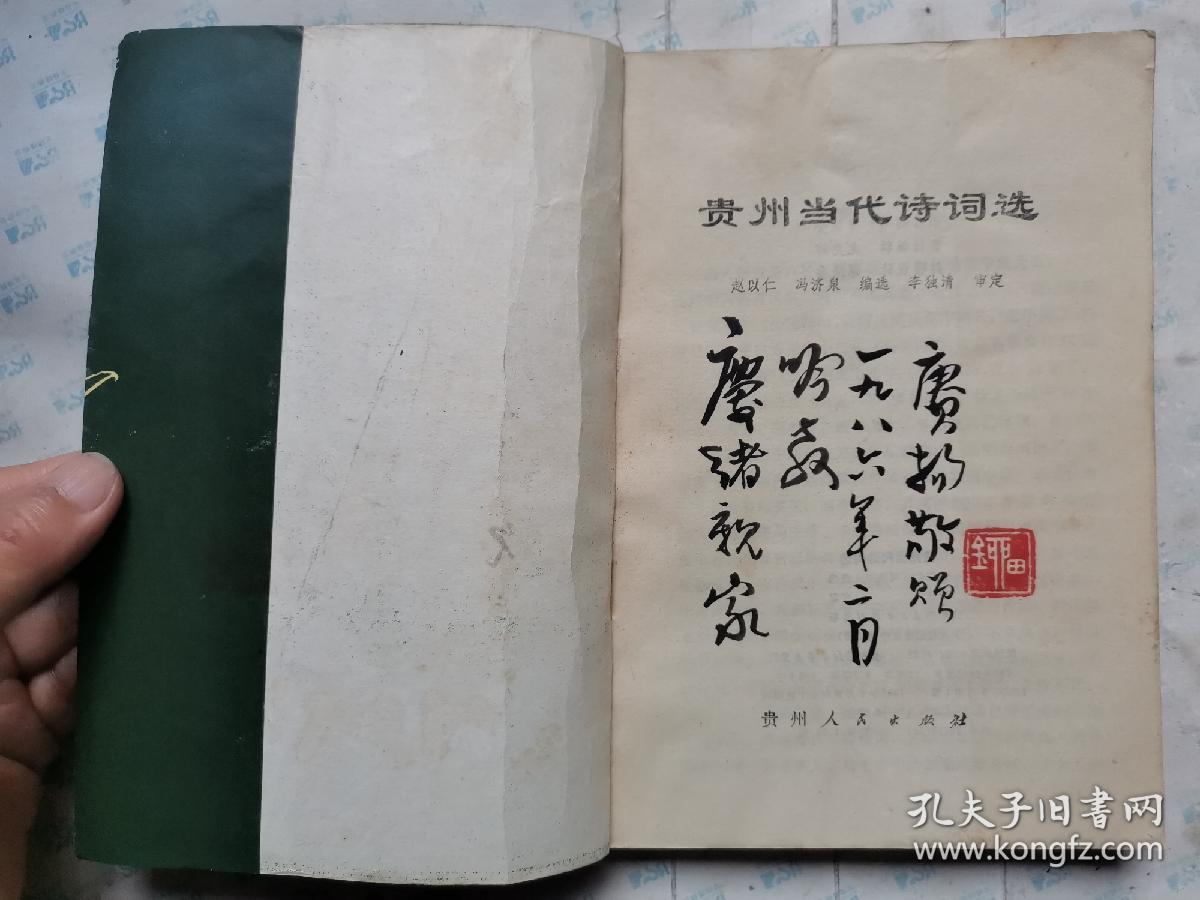 贵州当代诗词选
赵以仁 冯济泉 编选 李独清 审定
慶绪親家
吟教
一九八六年二月
赓扬敬赠
贵州人民出版社
孔夫子旧书网
www.kongfz.com